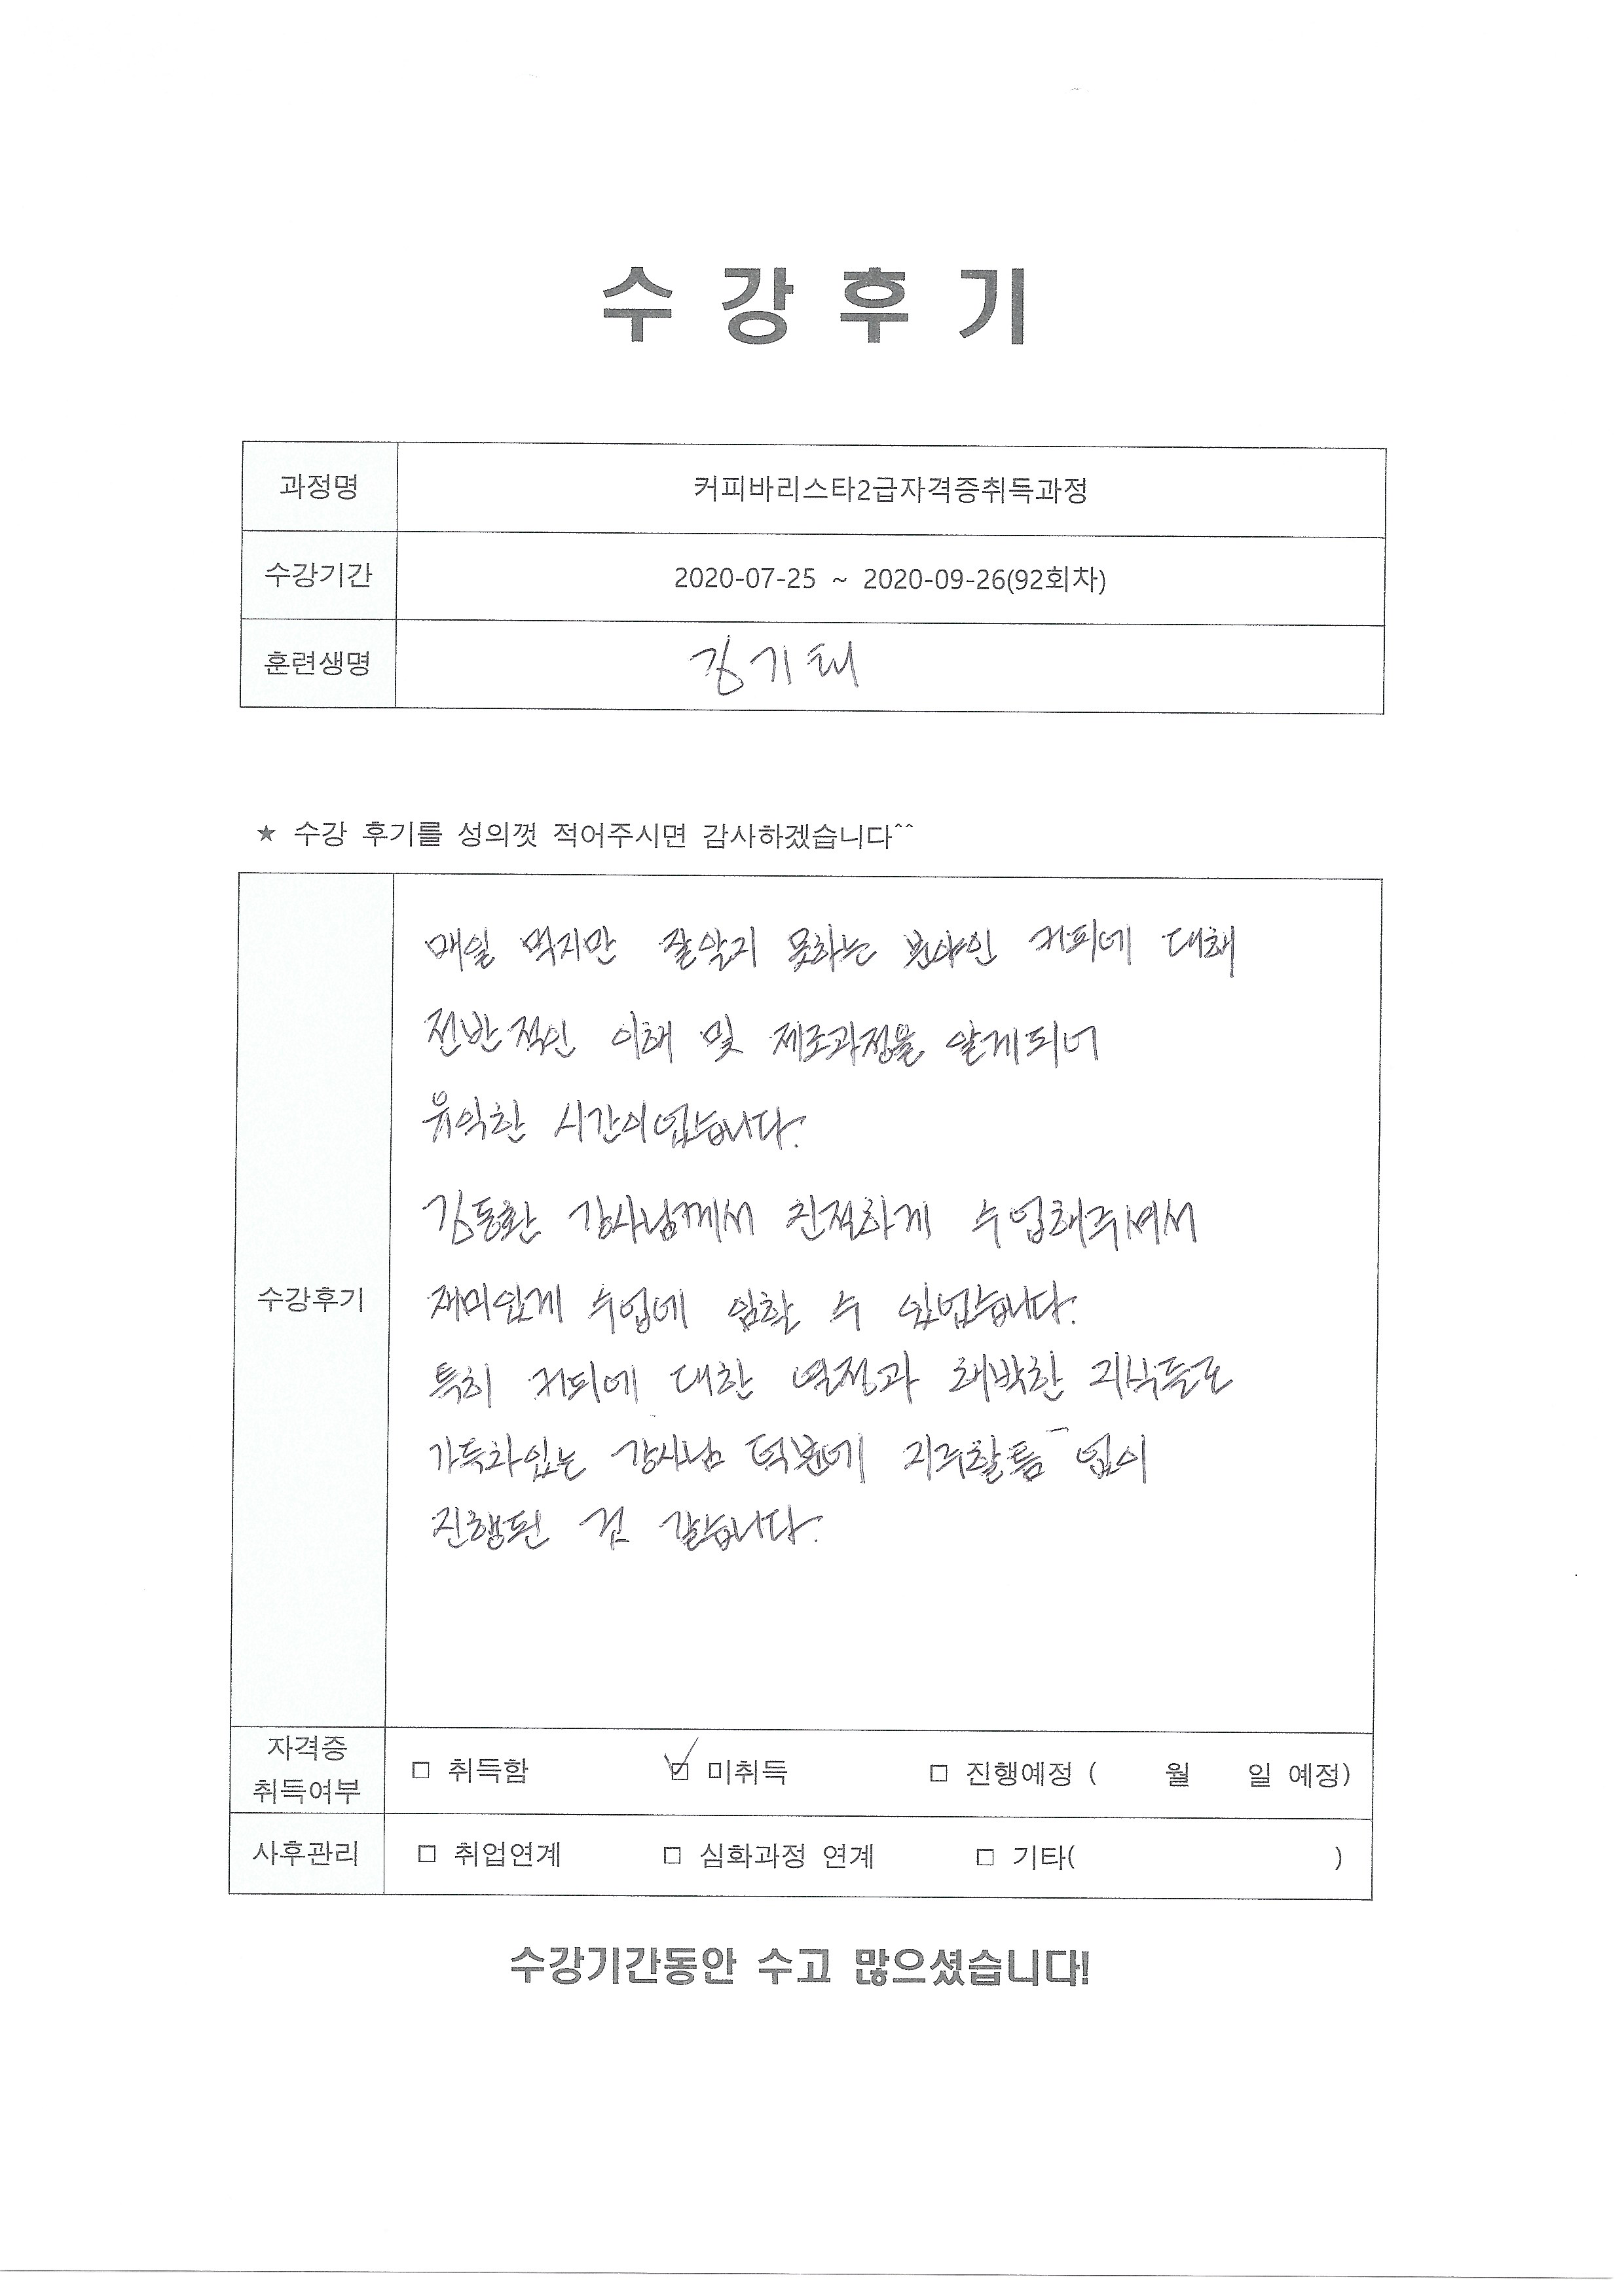 수강후기
과정명 커피바리스타2급자격증취득과정
수강기간 2020-07-25 ~ 2020-09-26(92회차)
훈련생명 김기태
★ 수강 후기를 성의껏 적어주시면 감사하겠습니다^^
매일 먹지만 잘알지 못하는 분야인 커피에 대해
전반적인 이해 및 제조과정을 알게되어
유익한 시간이었습니다.
김동환 강사님께서 친절하게 수업해주셔서
수강후기
재미있게 수업에 임할 수 있었습니다.
특히 커피에 대한 열정과 해박한 지식들로
가득차있는 강사님 덕분에 지루할틈 없이
진행된 것 같습니다.
자격증
취득여부
□ 취득함 ☑ 미취득 □ 진행예정 ( 월 일 예정)
사후관리 □ 취업연계 □ 심화과정 연계 □ 기타( )
수강기간동안 수고 많으셨습니다!